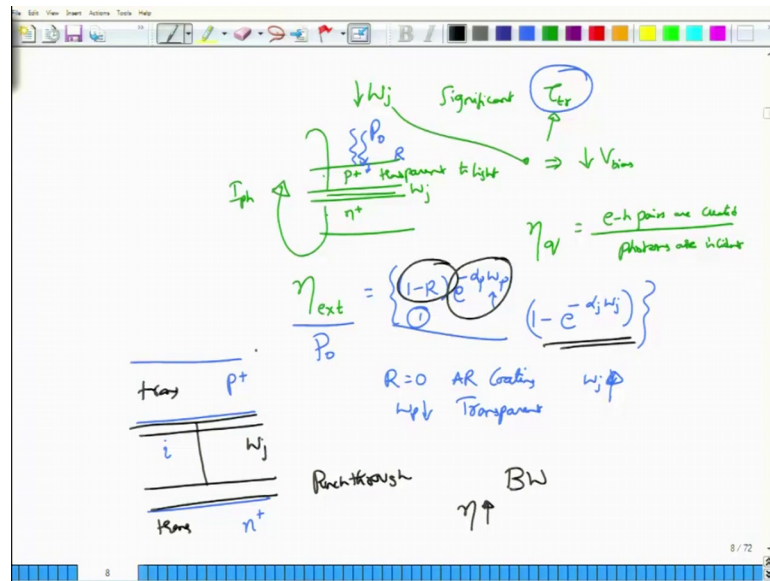 File Edit View Insert Actions Tools Help
B I
↓Wj Significant τtr
P₀
R
p+ transparent to light
Wj
n+
Iph
⇒ ↓ Vbias
ηq = e-h pairs are created
photons are incident
ηext = {(1-R) e^-αpWp (1-e^-αjWj)}
P₀
1
R=0 AR Coating Wj↑
Wp↓ Transparent
trans p+
i Wj
Punchthrough BW
η↑
trans n+
8 / 72
8